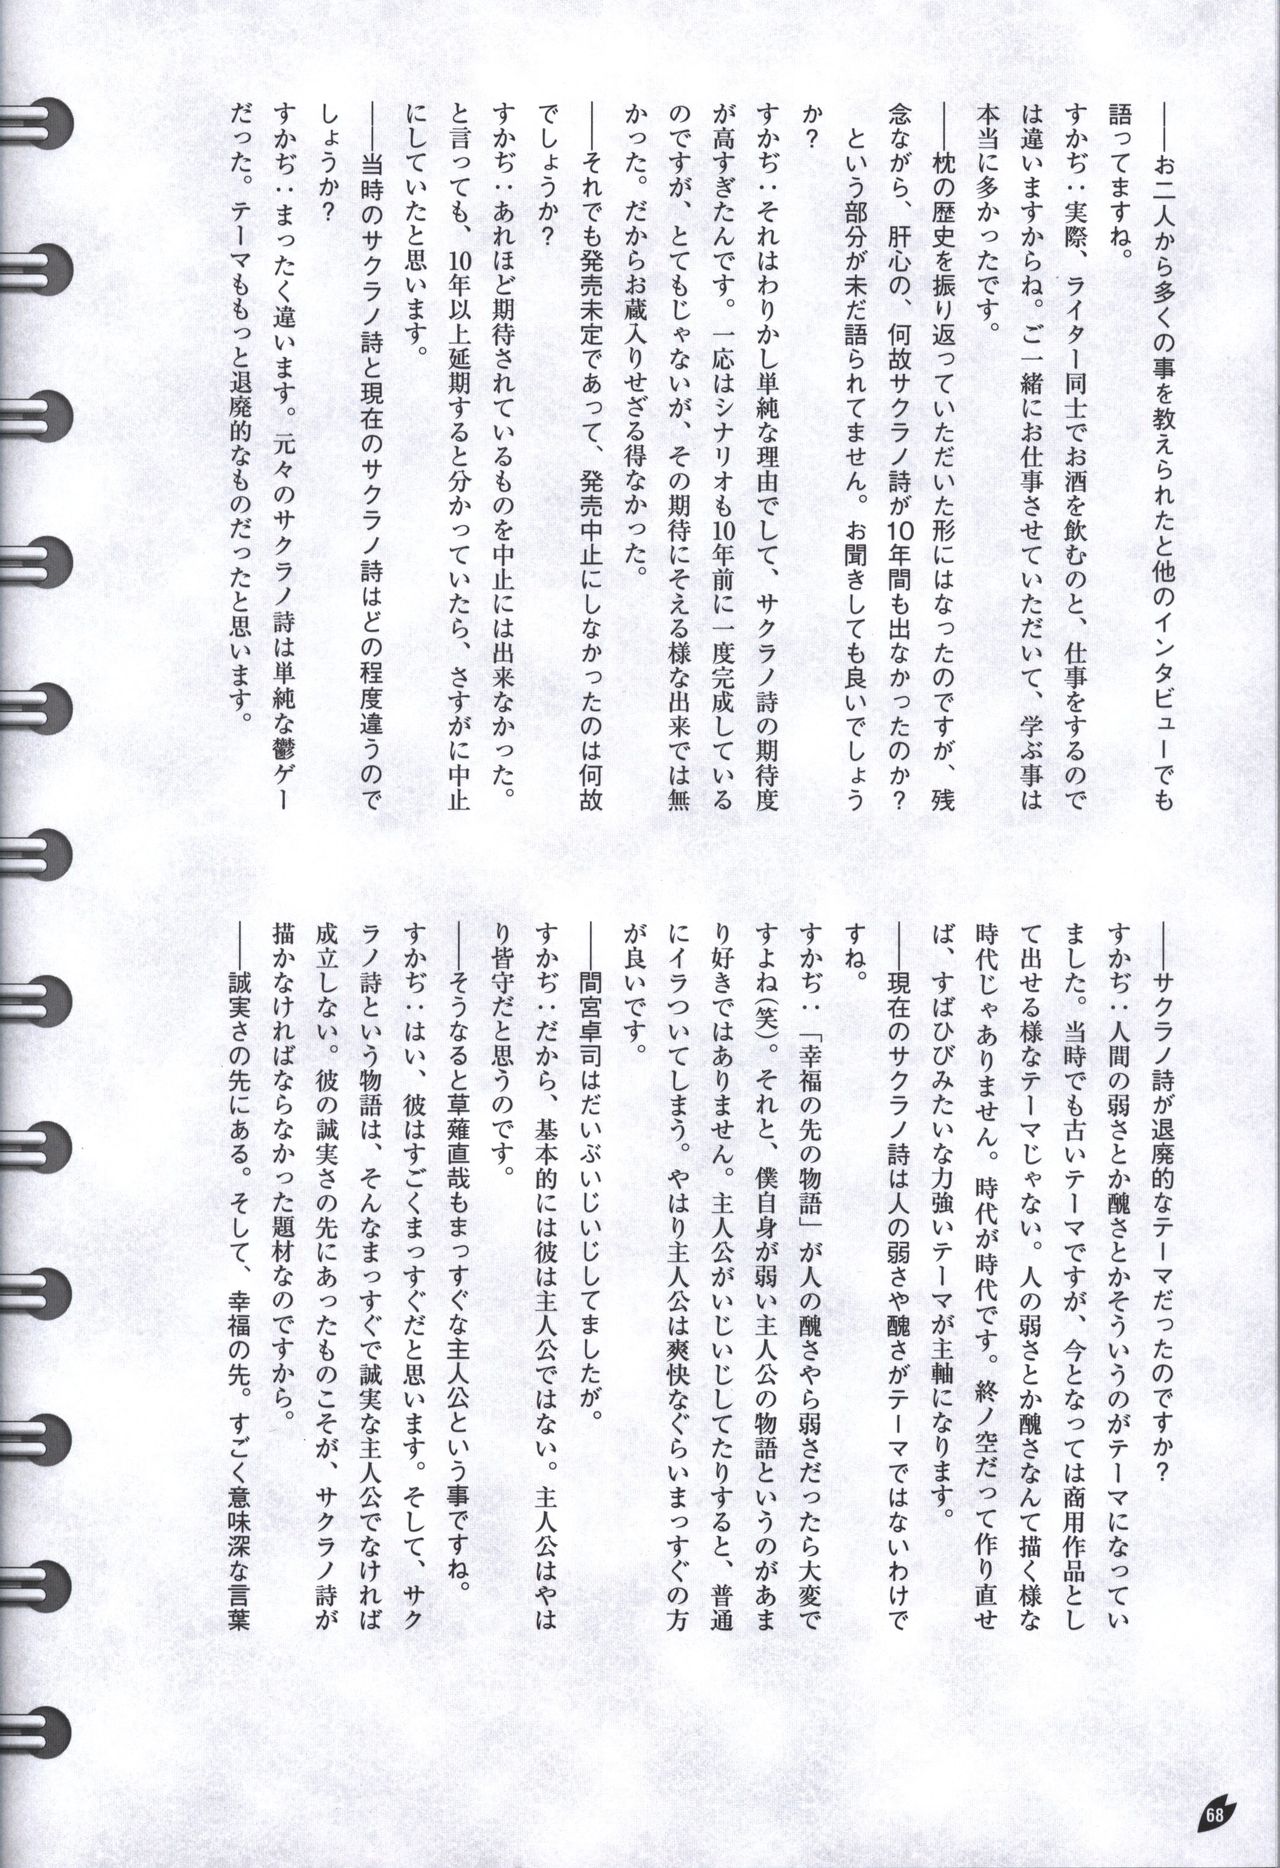 ――お二人から多くの事を教えられたと他のインタビューでも
語ってますね。
すかぢ：実際、ライター同士でお酒を飲むのと、仕事をするので
は違いますからね。ご一緒にお仕事させていただいて、学ぶ事は
本当に多かったです。
――枕の歴史を振り返っていただいた形にはなったのですが、残
念ながら、肝心の、何故サクラノ詩が10年間も出なかったのか？
という部分が未だ語られてません。お聞きしても良いでしょう
か？
すかぢ：それはわりかし単純な理由でして、サクラノ詩の期待度
が高すぎたんです。一応はシナリオも10年前に一度完成している
のですが、とてもじゃないが、その期待にそえる様な出来では無
かった。だからお蔵入りせざる得なかった。
――それでも発売未定であって、発売中止にしなかったのは何故
でしょうか？
すかぢ：あれほど期待されているものを中止には出来なかった。
と言っても、10年以上延期すると分かっていたら、さすがに中止
にしていたと思います。
――当時のサクラノ詩と現在のサクラノ詩はどの程度違うので
しょうか？
すかぢ：まったく違います。元々のサクラノ詩は単純な鬱ゲー
だった。テーマももっと退廃的なものだったと思います。
――サクラノ詩が退廃的なテーマだったのですか？
すかぢ：人間の弱さとか醜さとかそういうのがテーマになってい
ました。当時でも古いテーマですが、今となっては商用作品とし
て出せる様なテーマじゃない。人の弱さとか醜さなんて描く様な
時代じゃありません。時代が時代です。終ノ空だって作り直せ
ば、すばひびみたいな力強いテーマが主軸になります。
――現在のサクラノ詩は人の弱さや醜さがテーマではないわけで
すね。
すかぢ：「幸福の先の物語」が人の醜さやら弱さだったら大変で
すよね(笑)。それと、僕自身が弱い主人公の物語というのがあま
り好きではありません。主人公がいじいじしてたりすると、普通
にイラついてしまう。やはり主人公は爽快なぐらいまっすぐの方
が良いです。
――間宮卓司はだいぶいじいじしてましたが。
すかぢ：だから、基本的には彼は主人公ではない。主人公はやは
り皆守だと思うのです。
――そうなると草薙直哉もまっすぐな主人公という事ですね。
すかぢ：はい、彼はすごくまっすぐだと思います。そして、サク
ラノ詩という物語は、そんなまっすぐで誠実な主人公でなければ
成立しない。彼の誠実さの先にあったものこそが、サクラノ詩が
描かなければならなかった題材なのですから。
――誠実さの先にある。そして、幸福の先。すごく意味深な言葉
68